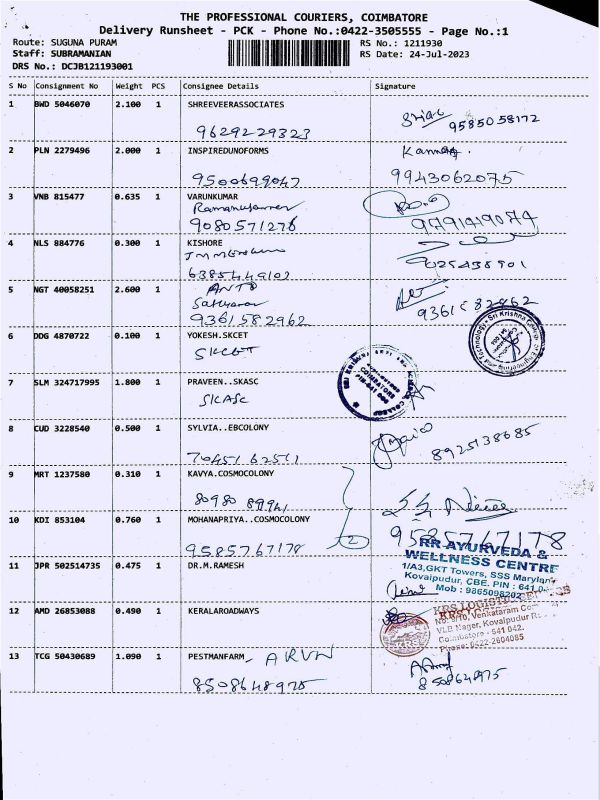 THE PROFESSIONAL COURIERS, COIMBATORE
Delivery Runsheet - PCK - Phone No.:0422-3505555 - Page No.:1
Route: SUGUNA PURAM RS No.: 1211930
Staff: SUBRAMANIAN RS Date: 24-Jul-2023
DRS No.: DCJB121193001
S No Consignment No Weight PCS Consignee Details Signature
1 BWD 5046070 2.100 1 SHREEVEERASSOCIATES
9629229323 9585058172
2 PLN 2279496 2.000 1 INSPIREDUNOFORMS
9500699047 9943062075
3 VNB 815477 0.635 1 VARUNKUMAR
9080571276
4 NLS 884776 0.300 1 KISHORE
5 NGT 40058251 2.600 1 ANTO
9361582962 9361582962
6 DDG 4870722 0.100 1 YOKESH.SKCET
SKCET
7 SLM 324717995 1.800 1 PRAVEEN..SKASC
SKASC
8 CUD 3228540 0.500 1 SYLVIA..EBCOLONY
8925138685
9 MRT 1237580 0.310 1 KAVYA.COSMOCOLONY
10 KDI 853104 0.760 1 MOHANAPRIYA..COSMOCOLONY
9585767178 9585767178
RR AYURVEDA &
WELLNESS CENTRE
11 JPR 502514735 0.475 1 DR.M.RAMESH
1/A3,GKT Towers, SSS
Kovaipudur, CBE. PIN : 641
Mob : 9865098202
12 AMD 26853088 0.490 1 KERALAROADWAYS
KRS LOGISTICS
Venkataram
VLB Nager, Kovaipudur
Coimbatore - 641 042.
Phone: 0422-2604085
13 TCG 50430689 1.090 1 PESTMANFARM, ARUN
8508648975 850864975